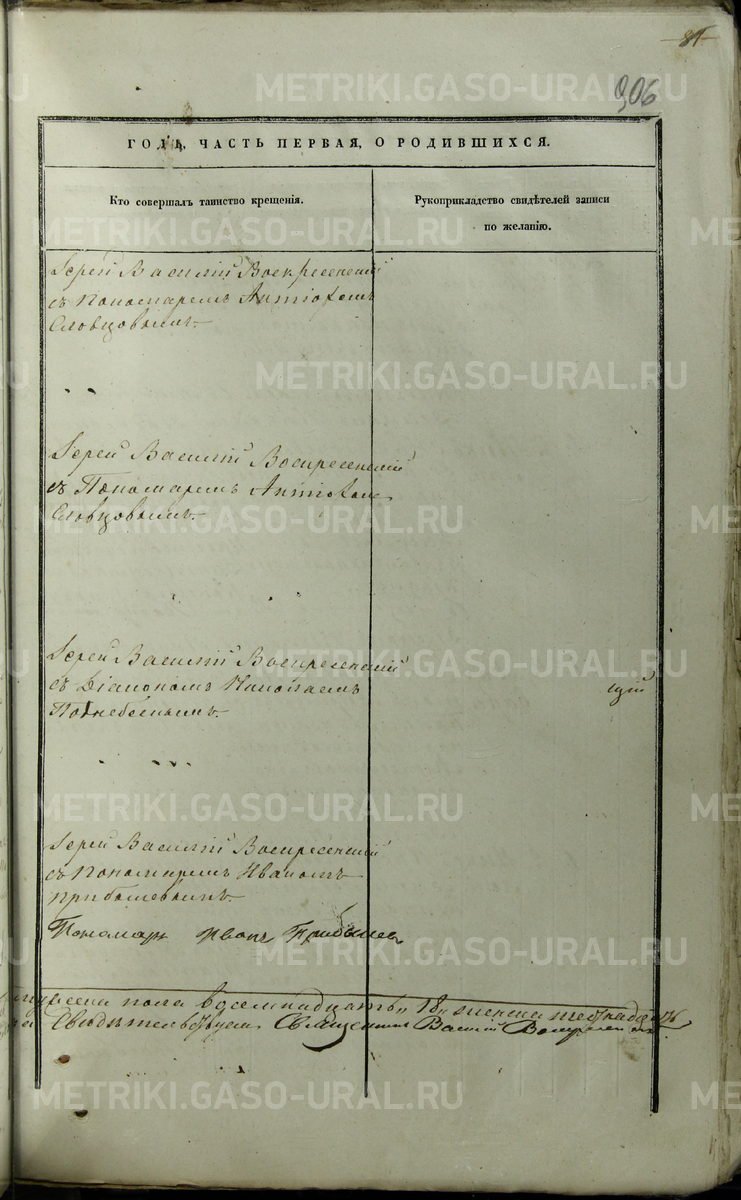 81
906
ГОДѢ, ЧАСТЬ ПЕРВАЯ, О РОДИВШИХСЯ.
Кто совершалъ таинство крещенія.
Рукоприкладство свидѣтелей записи
по желанію.
Іерей Василій Воскресенскій
съ Пономаремъ Антіохомъ
Словцовымъ.
Іерей Василій Воскресенскій
съ Пономаремъ Антіохом
Словцовымъ.
Іерей Василій Воскресенскій
съ Діакономъ Николаемъ
Поднебеснымъ.
щій
Іерей Василій Воскресенскій
съ Пономаремъ Иваномъ
Прибылевымъ.
Пономарь Иванъ Прибылев
пола восемнадцать 18 женска шестнадцать
Свидѣтельствуем Священникъ Василій
METRIKI.GASO-URAL.RU